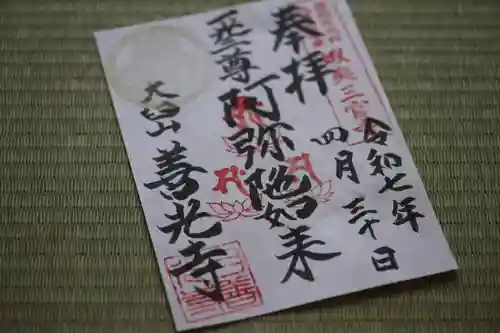 奉拝
令和七年
四月三十日
三尊阿弥陀如来
大臼山
善光寺